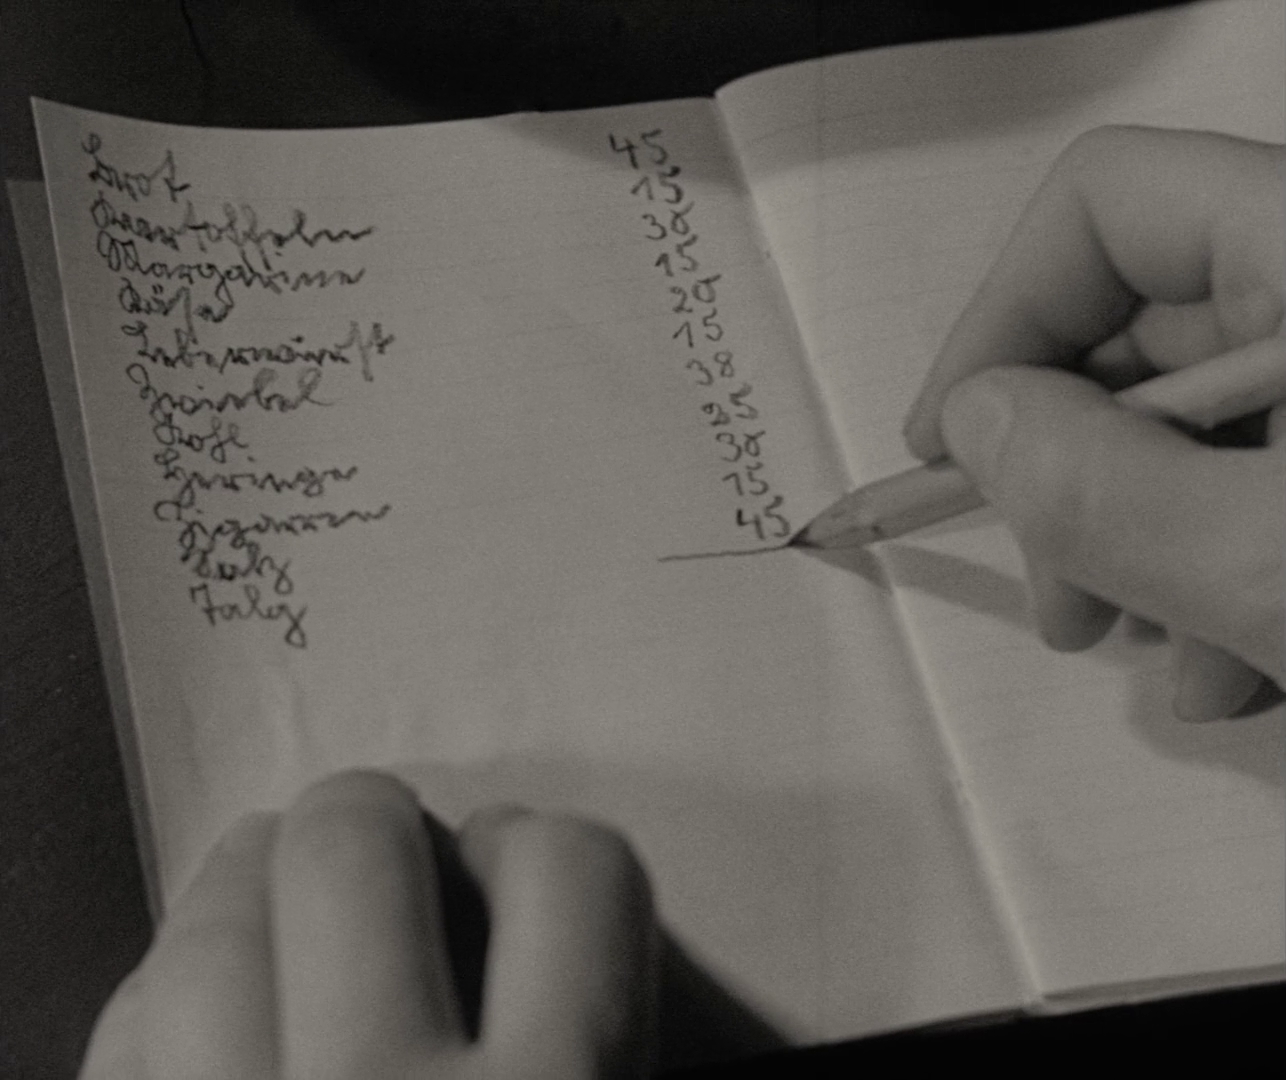 Brot 45
Kartoffeln 15
Margarine 30
Käse 15
Leberwurst 20
Zwiebel 15
Kohl 38
Heringe 25
Zigarren 30
Salz 15
Talg 45